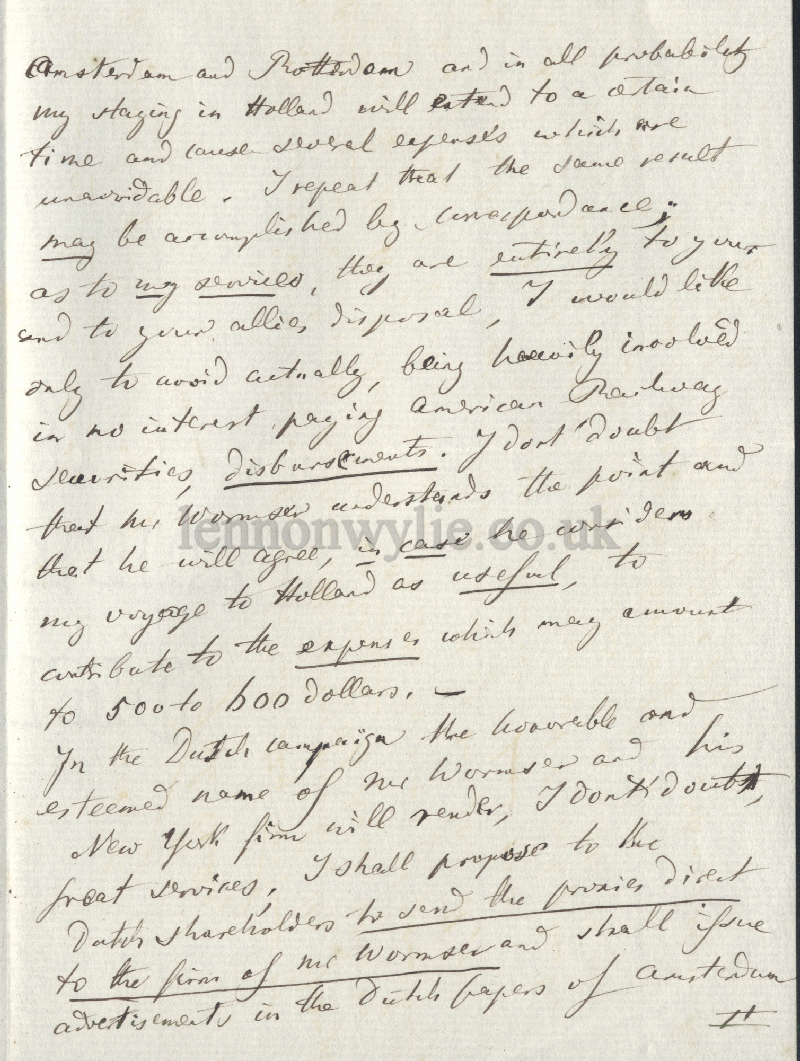 Amsterdam and Rotterdam and in all probability
my staying in Holland will extend to a certain
time and cause several expenses which are
unavoidable. I repeat that the same result
may be accomplished by correspondance;
as to my services, they are entirely to your
and to your allies disposal, I would like
only to avoid actually, being heavily involved
in no interest paying American Railway
securities, disbursements. I dont doubt
that Mr Wormser understands the point and
lennonwylie.co.uk
that he will agree, in case he considers
my voyage to Holland as useful, to
contribute to the expenses which may amount
to 500 to 600 dollars. —
In the Dutch campaign the honorable and
esteemed name of Mr Wormser and his
New York firm will render, I dont doubt,
great services, I shall propose to the
Dutch shareholders to send the proxies direct
to the firm of Mr Wormser and shall issue
advertisements in the Dutch papers of Amsterdam
II